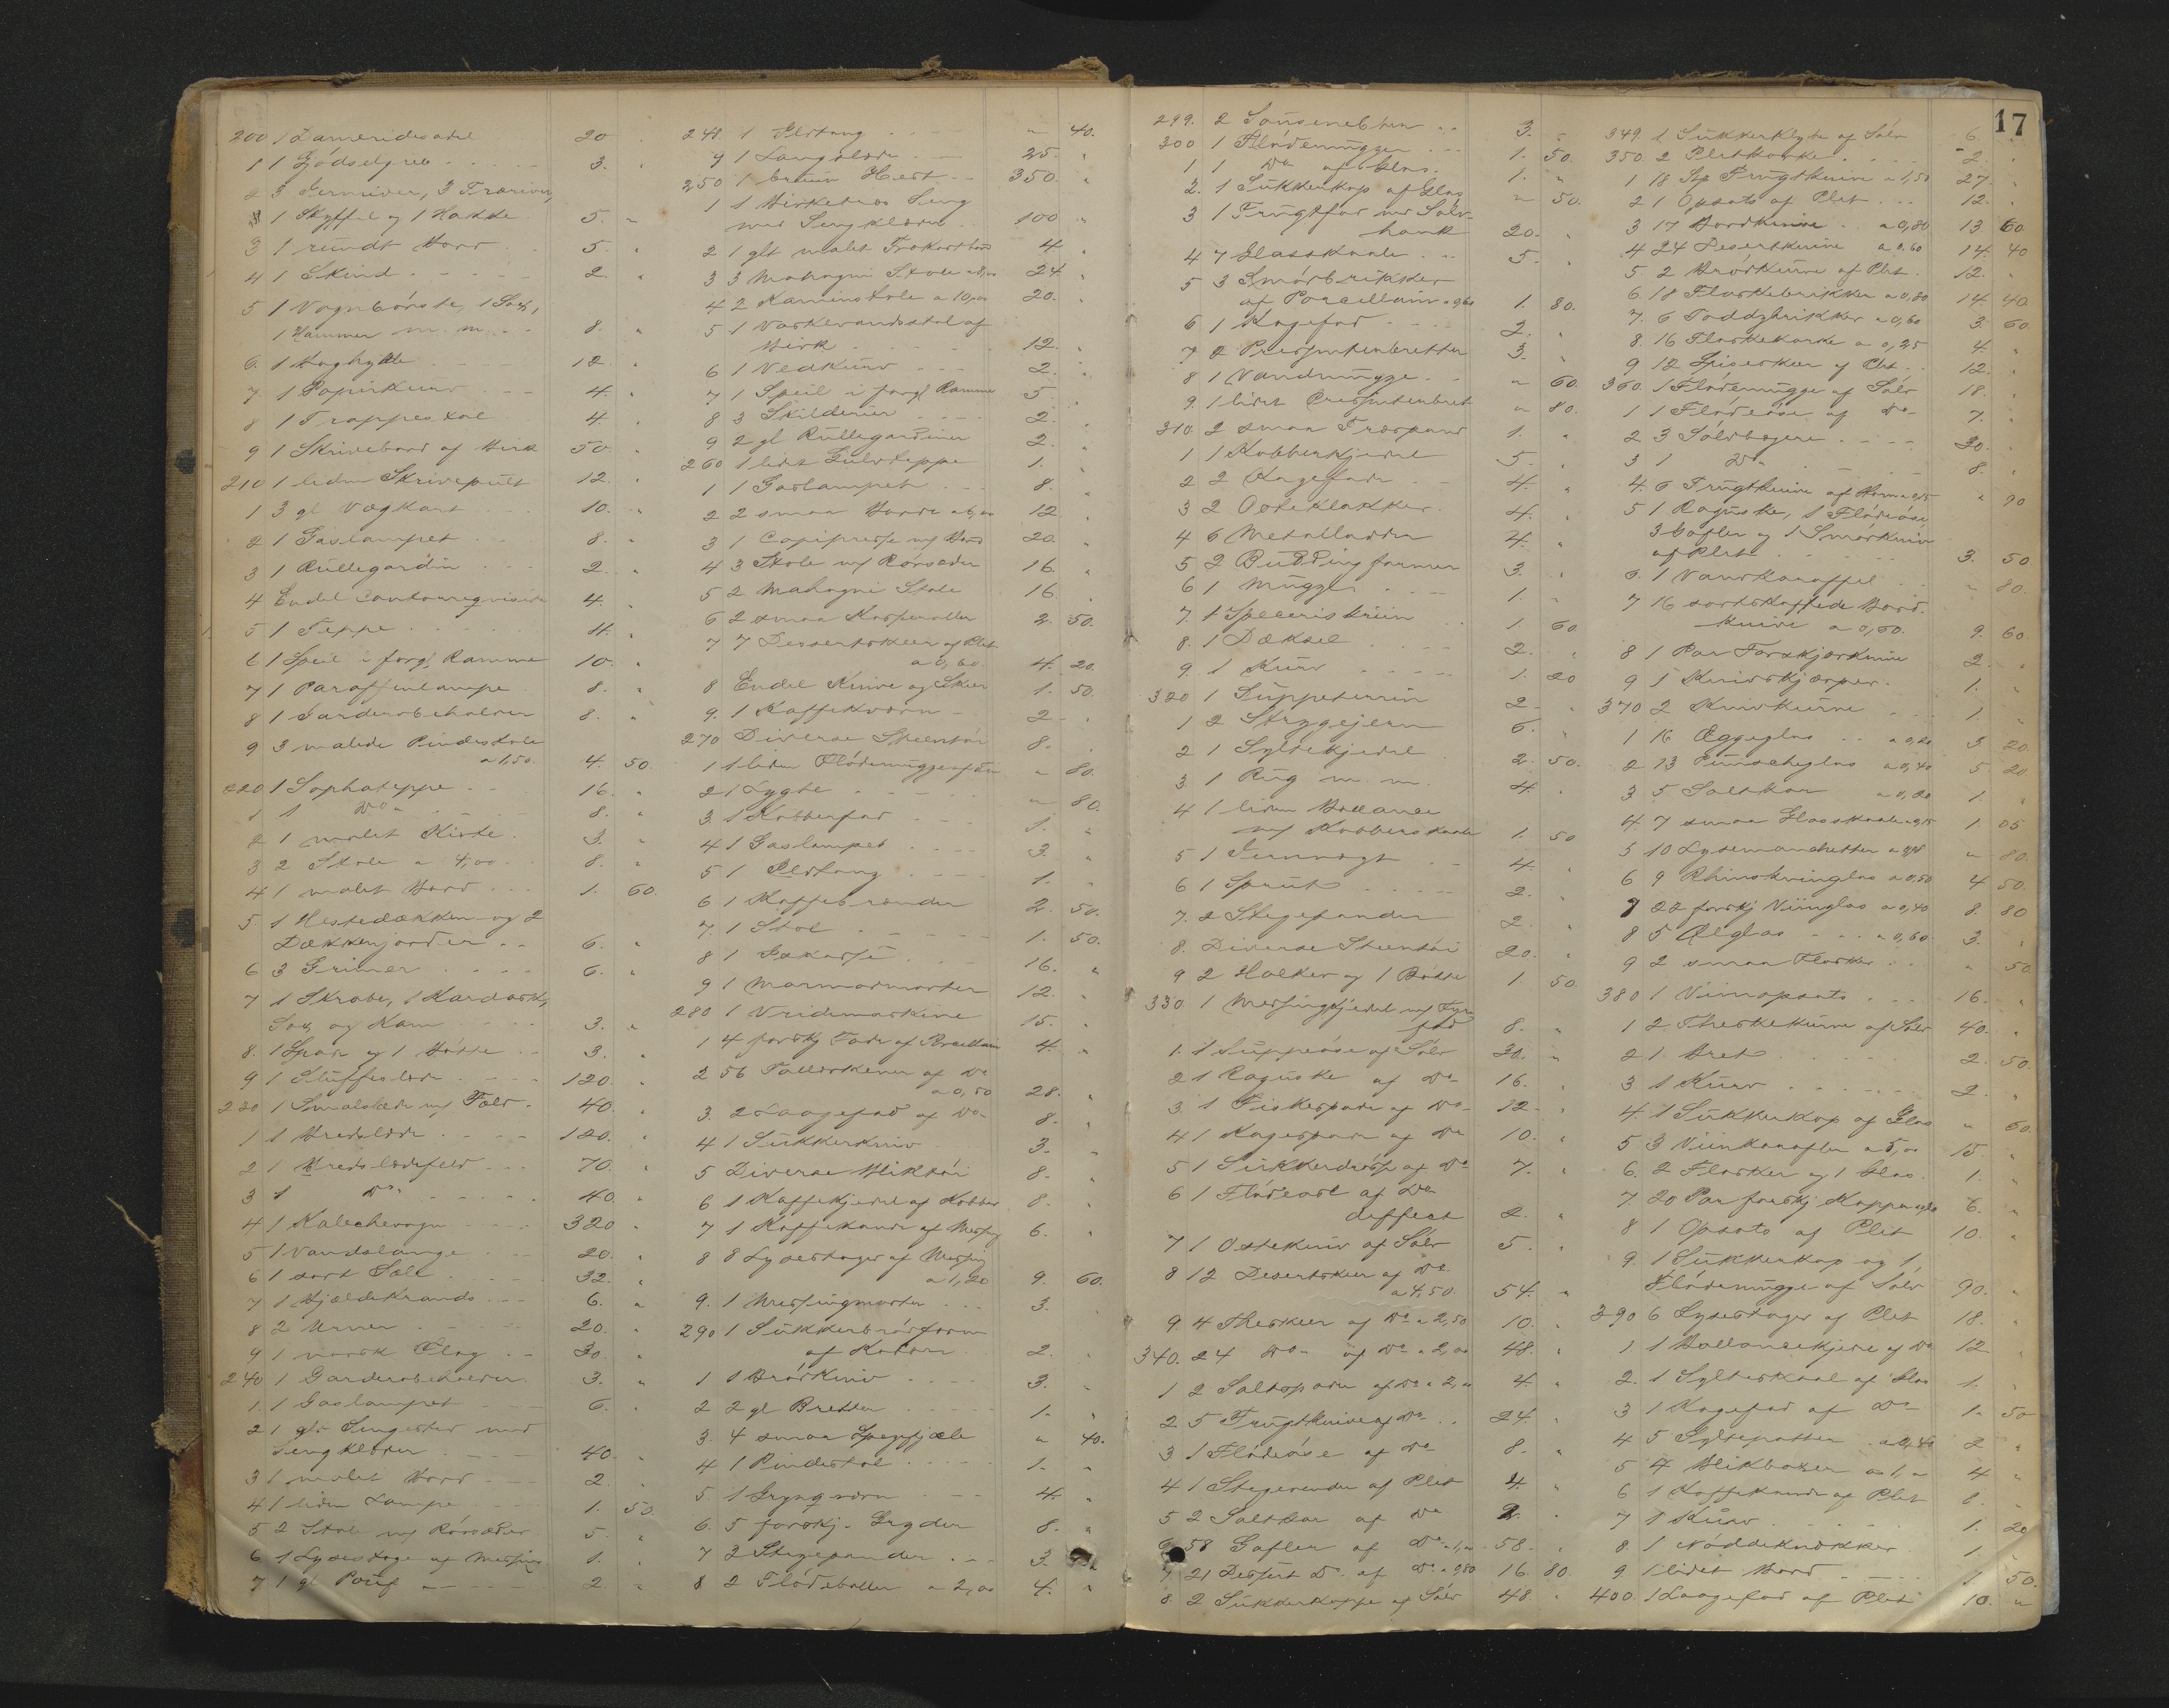 200 1 Dameridesadel 20
1 1 Gjødselgreb 3. "
2 3 Jernriver, 3 Træriver,
1 Skyffel og 1 Hakke 5. "
3 1 rundt Bord 5. "
4 1 Skind 2. "
5 1 Vognbørste, 1 Sax,
1 Hammer m. m. 8. "
6. 1 12. "
7 1 Papirkurv 4. "
8 1 Trappestol 4. "
9 1 Skrivebord af Birk 50. "
210 1 liden Skrivepult 12. "
1 3 gl Vægkart 10. "
2 1 Gaslampet 8. "
3 1 Rullegardin 2. "
4 Endel Contorreqvisiter 4. "
5 1 Teppe 4. "
6 1 Speil i forgl Ramme 10. "
7 1 Paraffinlampe 8. "
8 1 Garderobeholder 8. "
9 3 malede Pindestole
a 1,50. 4. 50.
220 1 Sophateppe 16. "
1 1 Do 8. "
2 1 malet Kiste. 3. "
3 2 Stole a 4,00. 8. "
4 1 malet Bord 1. 60.
5 1 Hestedækken og 2
Dækkenjorder 6. "
6 3 Grimer 6. "
7 1 Skrabe, 1 Kardask,
Sax og Kam 3. "
8. 1 Spade og 1 Bøtte 3. "
9 1 Sluffeslæde 120. "
230 1 Smalslæde m/ Fæld 40. "
1 1 Bredslæde 120. "
2 1 Bredslædefeld 70. "
3 1 Do 40. "
4 1 Kalechevogn 320. "
5 1 Vandslange 20. "
6 1 sort Sæle 32. "
7 1 Bjældekrands 6. "
8 2 Urner 20. "
9 1 norsk Flag 30. "
240 1 Garderobeholder 3. "
1. 1 Gaslampet 6. "
2 1 glt Sengested med
Sengklæder 40. "
3 1 malet Bord 2. "
4 1 liden Lampe 1. 50.
5 2 Stole m/ Rørsæder 5. "
6 1 Lysestage af Messing 1. "
7 1 gl Pouf 2. "
248. 1 Ildtang " 40.
9 1 Langslæde 25. "
250 1 bruun Hest 350. "
1 1 Birketræs Seng
med Sengklæder 100 "
2 1 glt malet Frokostbord 4. "
3 3 Mahogni Stole a 8,00 24. "
4 2 Kaminstole a 10,00 20. "
5 1 Vaskevandsstol af
Birk 12. "
6 1 Vedkurv 2. "
7 1 Speil i forgl Ramme 5. "
8 3 Skilderier 2. "
9 2 gl Rullegardiner 2. "
260 1 lidet Gulvteppe 1. "
1 1 Gaslampet 8. "
2 2 smaa Borde a 6,00 12. "
3 1 Copipresse m/ Bord 20. "
4 3 Stole m/ Rørsæder 16. "
5 2 Mahogni Stole 16. "
6 2 smaa 2. 50.
7 7 Dessertskeer af Plet
a 0,60 4. 20.
8 Endel Knive og Skeer 1. 50.
9. 1 Kaffekværn 2. "
270 Diverse Steentøi 8. "
1 1 liden Flødemugge af Tin " 80.
2 1 Lygte " 80.
3. 1 Kobberfad 1. "
4 1 Gaslampet 3. "
5 1 Ildtang 1. "
6 1 Kaffebrænder 2. 50.
7. 1 Stol 1. 50.
8 1 Iskasse 16. "
9 1 Marmormorter 12. "
280 1 Vridemaskine 15. "
1 4 forskj Fade af Porcellain 4. "
2 56 Tallerkener af Do
a 0,50 28. "
3. 2 Laagefad af Do 8. "
4 1 Sukkerkniv 3. "
5 Diverse Bliktøi 8. "
6 1 Kaffekjedel af Kobber 8. "
7 1 Kaffekande af Messing 6. "
8 8 Lysestager af Messing
a 1,20 9. 60.
9. 1 Messingmorter 3. "
290 1 Sukkerbrødform
af Kobber 2. "
1 1 Brødkniv 3. "
2 2 gl Bretter 1. "
3. 4 smaa Spegefjæle " 40.
4 1 Pindestol 1. "
5. 1 Grynqværn 4. "
6. 5 forskj. Gryder 8. "
7 3 Stegepander 3. "
8 2 Flødeboller a 2,00 4. "
17
299. 2 Sauseneb 3. "
300 1 Flødemugge 1. 50.
1 1 Do af Glas 1. "
2. 1 Sukkerkop af Glas " 50.
3 1 Frugtfad med Sølv-
hank 20. "
4 7 Glasskaale 5. "
5 3 Smørbrikker
af Porcellain a 0,60 1. 80.
6 1 Kagefad 2. "
7 2 Presenteerbretter 3. "
8 1 Vandmugge " 60.
9. 1 lidet Presenteerbret " 80.
310. 2 smaa Træspand 1. "
1 1 Kobberkjedel 5. "
2 2 Kagefade 4. "
3 2 Osteklokker 4. "
4 6 Metalladder 4. "
5 2 Buddingformer 3. "
6 1 Mugge 1. "
7. 1 Specerisbrün 1. 60.
8. 1 Dæksel 2. "
9. 1 Kurv 1. 20
320 1 Suppeterrin 2. "
1 2 Strygejern 6. "
2 1 Syltekjedel 2. 50.
3. 1 Rug m. m. 4. "
4 1 liden Ballance
m/ Kobberskaale 1. 50
5 1 Jernvægt 4. "
6 1 Sprut 2. "
7. 2 Stegepander 2. "
8. Diverse Steentøi 20. "
9 2 Holker og 1 Bøtte 1. 50.
330. 1 Messingkjedel m/ Fyr
fad 8. "
1. 1 Suppeøse af Sølv 30. "
2 1 Raguske af Do 16. "
3. 1 Fiskespade af Do 12. "
4 1 Kagespade af Do 10. "
5 1 Sukkerdrøss af Do 7. "
6 1 Flødeøse af Do
deffect 2. "
7 1 Ostekniv af Sølv 5. "
8 12 Desertskeer af Do
a 4,50. 54. "
9. 4 Theskeer af Do a 2,50 10. "
340. 24 Do af Do a 2,00 48. "
1 2 Saltspader af Do a 2,00 4. "
2 5 Frugtknive af Do 24. "
3 1 Flødeøse af Do 8. "
4 1 Stegerende af Plet 4. "
5 2 Saltkar af Do 2. "
6 58 Gafler af Do a 1,00 58. "
7. 21 Dessert Do af Do a 0,80 16. 80.
8. 2 Sukkerkoppe af Sølv 48. "
349. 1 Sukkerklype af Sølv 6. "
350. 2 Pletkorke 2. "
1 18 Stp Frugtknive a 1,50 27. "
2 1 Opsats af Plet 12. "
3 17 Bordknive a 0,80 13 60.
4 24 Desertknive a 0,60 14. 40
5. 2 Brødkurve af Plet 12. "
6. 18 Flaskebrikker a 0,80 14. 40.
7. 6 Toddybrikker a 0,60 3. 60.
8. 16 Flaskekorke a 0,25 4. "
9 12 Spiseskeer af Plet 12. "
360. 1 Flødemugge af Sølv 18. "
1 1 Flødeøse af Do 7. "
2 3 Sølvbægere 30. "
3 1 Do 8. "
4. 6 Frugtknive af Horn a 0,15 " 90
5 1 Raguske, 1 Flødeøse,
3 Gafler og 1 Smørkniv
af Plet 3. 50
6. 1 Vandkaraffel " 80.
7 16 sortskaftede Bord-
knive a 0,60. 9. 60.
8 1 Par Forskjærknive 2. "
9 1 Knivskjærper. 1. "
370 2 Knivkurve 1. "
1 16 Æggeglas a 0,20 3. 20.
2 13 Punscheglas a 0,40 5 20
3 5 Saltkar a 0,20 1. "
4. 7 smaa Glasskaale a 0,15 1. 05
5 10 Lysemanchetter a 0,08 " 80.
6 9 Rhinskvinglas a 0,50 4 50.
7 22 forskj Viinglas a 0,40 8. 80
8 5 Ølglas a 0,60 3. "
9 2 smaa Flasker " 50.
380 1 Viinopsats 16. "
1 2 Theskekurve af Sølv 40. "
2 1 Bret 2. 50
3 1 Kurv 2. "
4. 1 Sukkerkop af Glas " 60.
5 3 Viinkarafler a 5,00 15 "
6. 2 Flasker og 1 Glas 1. "
7. 20 Par forskj Kopper a 0,30 6. "
8 1 Opsats af Plet 10. "
9. 1 Sukkerkop og 1
Flødemugge af Sølv 90. "
390 6 Lysestager af Plet 18. "
1 1 af Do 12 "
2. 1 Sylteskaal af Glas 1. "
3 1 Kagefad af Do 1. 50
4 5 Syltepotter a 0,40 2 "
5 4 Blikboxer a 1,00 4 "
6 1 Kaffekande af Plet 8. "
7 1 Kurv 1. 20
8. 1 Nøddeknækker 1. "
9. 1 lidet Bord 1. 50.
400. 1 Laagefad af Plet 10. "